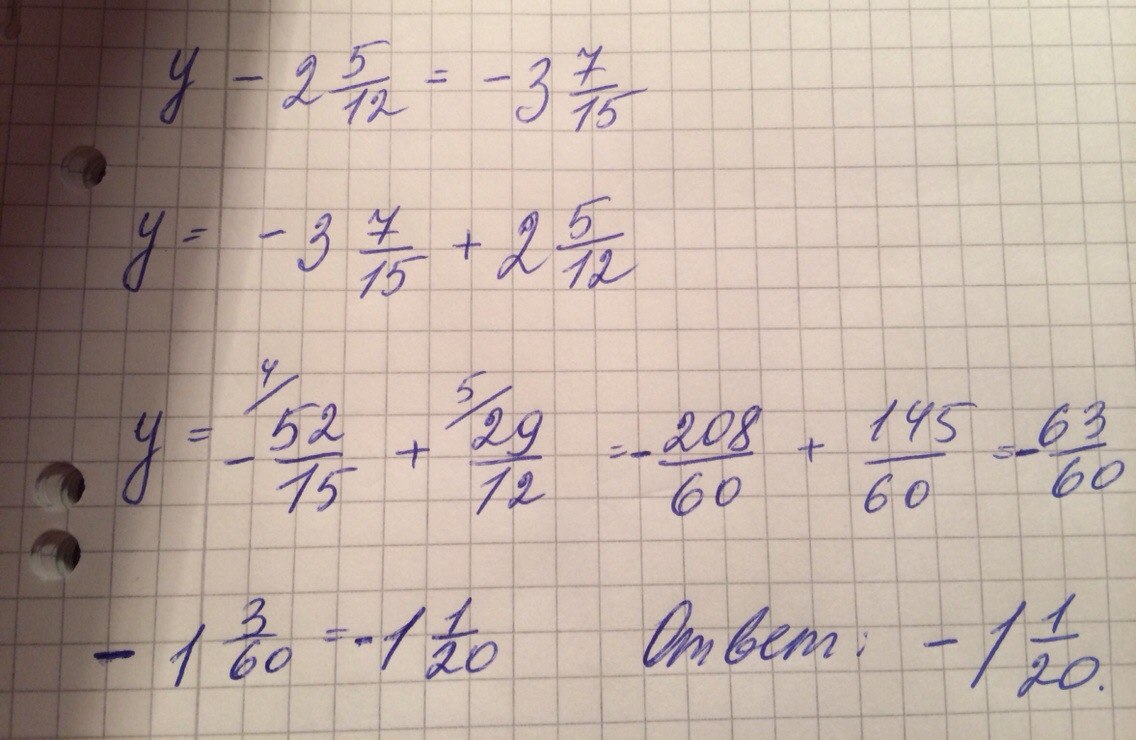 y - 2 5/12 = -3 7/15
y = -3 7/15 + 2 5/12
y = - 4/ 52/15 + 5/ 29/12 = - 208/60 + 145/60 = - 63/60
- 1 3/60 = -1 1/20 Ответ: -1 1/20.